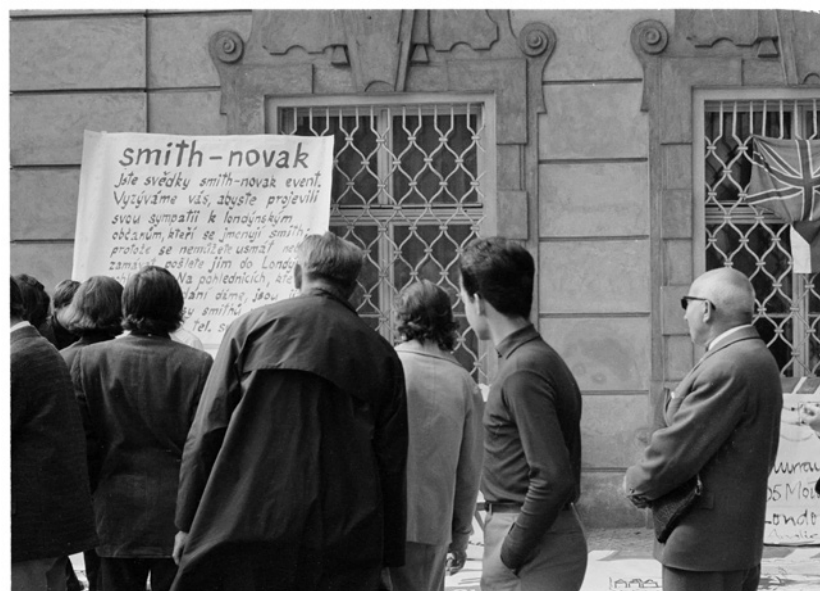 smith-novak
Jste svědky smith-novak event.
Vyzýváme vás, abyste projevili
svou sympatii k londýnským
občanům, kteří se jmenují smith
protože se nemůžete usmát
zamávat pošlete jim do
Na pohlednicích,
dáme, jsou
smithů
tel.
Londo